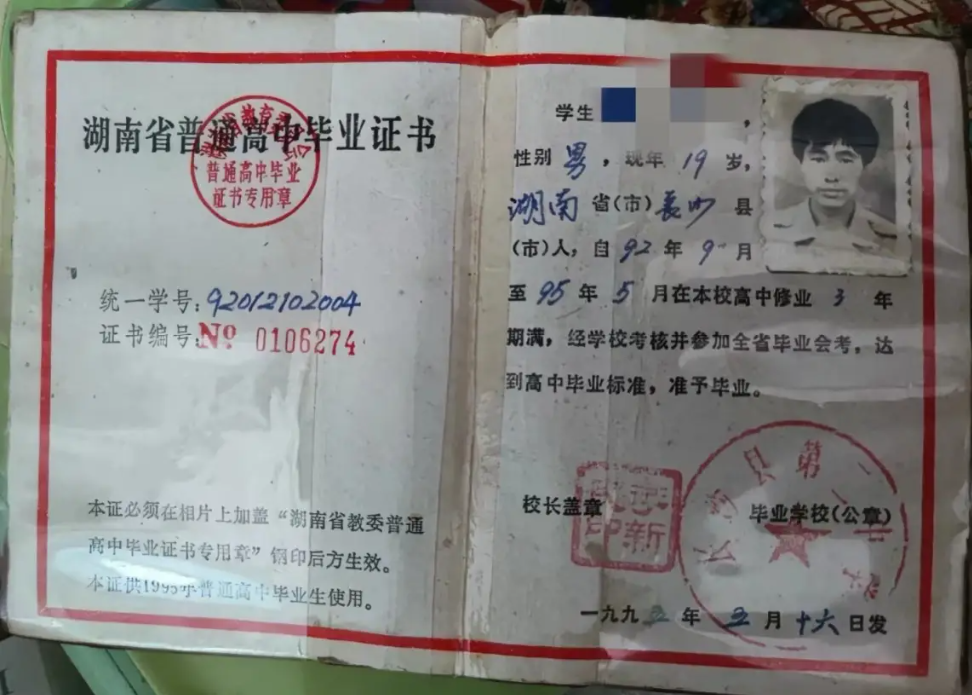 湖南省普通高中毕业证书
普通高中毕业
证书专用章
统一学号:92012102004
证书编号:No 0106274
本证必须在相片上加盖“湖南省教委普通
高中毕业证书专用章”钢印后方生效。
本证供1995年普通高中毕业生使用。
学生 ,
性别 男 , 现年 19 岁,
湖南 省(市) 长沙 县
(市)人, 自 92 年 9 月
至 95 年 5 月在本校高中修业 3 年
期满, 经学校考核并参加全省毕业会考, 达
到高中毕业标准, 准予毕业。
校长盖章
毕业学校(公章)
一九九五年 五 月 十六 日发